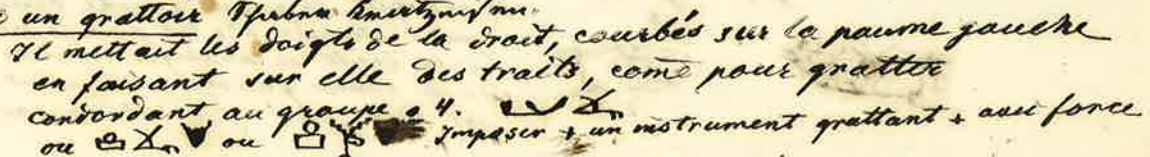 un grattoir
Il mettait les doigts de la droit, courbés sur la paume gauche
en faisant sur elle des traits, comē pour gratter
concordant, au groupe 04.
ou ou Imposer + un instrument grattant + avec force